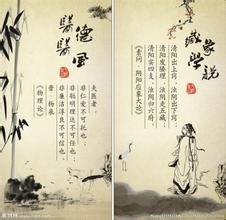 醫德
醫風
夫医者
非仁爱不可托也；
非聪明理达不可任也；
非廉洁淳良不可信也。
晋·杨泉
《物理论》
藏象
學說
清阳出上窍，浊阴出下窍；
清阳发腠理，浊阴走五藏；
清阳实四支，浊阴归六府。
《素问·阴阳应象大论》